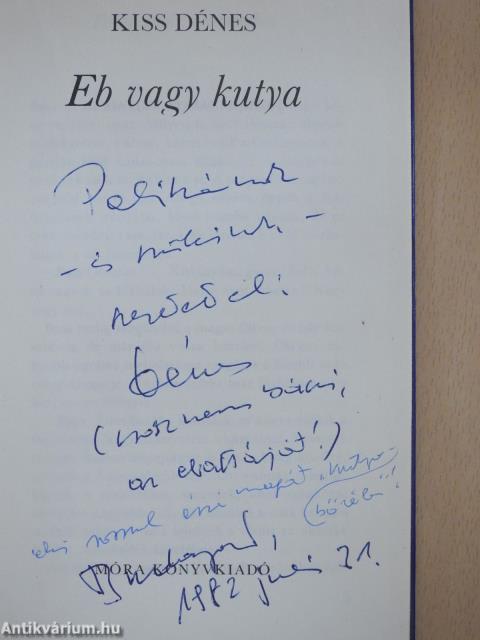 KISS DÉNES
Eb vagy kutya
Palikának
- és szüleinek -
szeretettel:
Dénes
(most nem bácsi,
az
aki rosszul érzi magát "kutya-
bőrében"!
Budapest,
MÓRA KÖNYVKIADÓ
1982 juni 21.
Antikvárium.hu